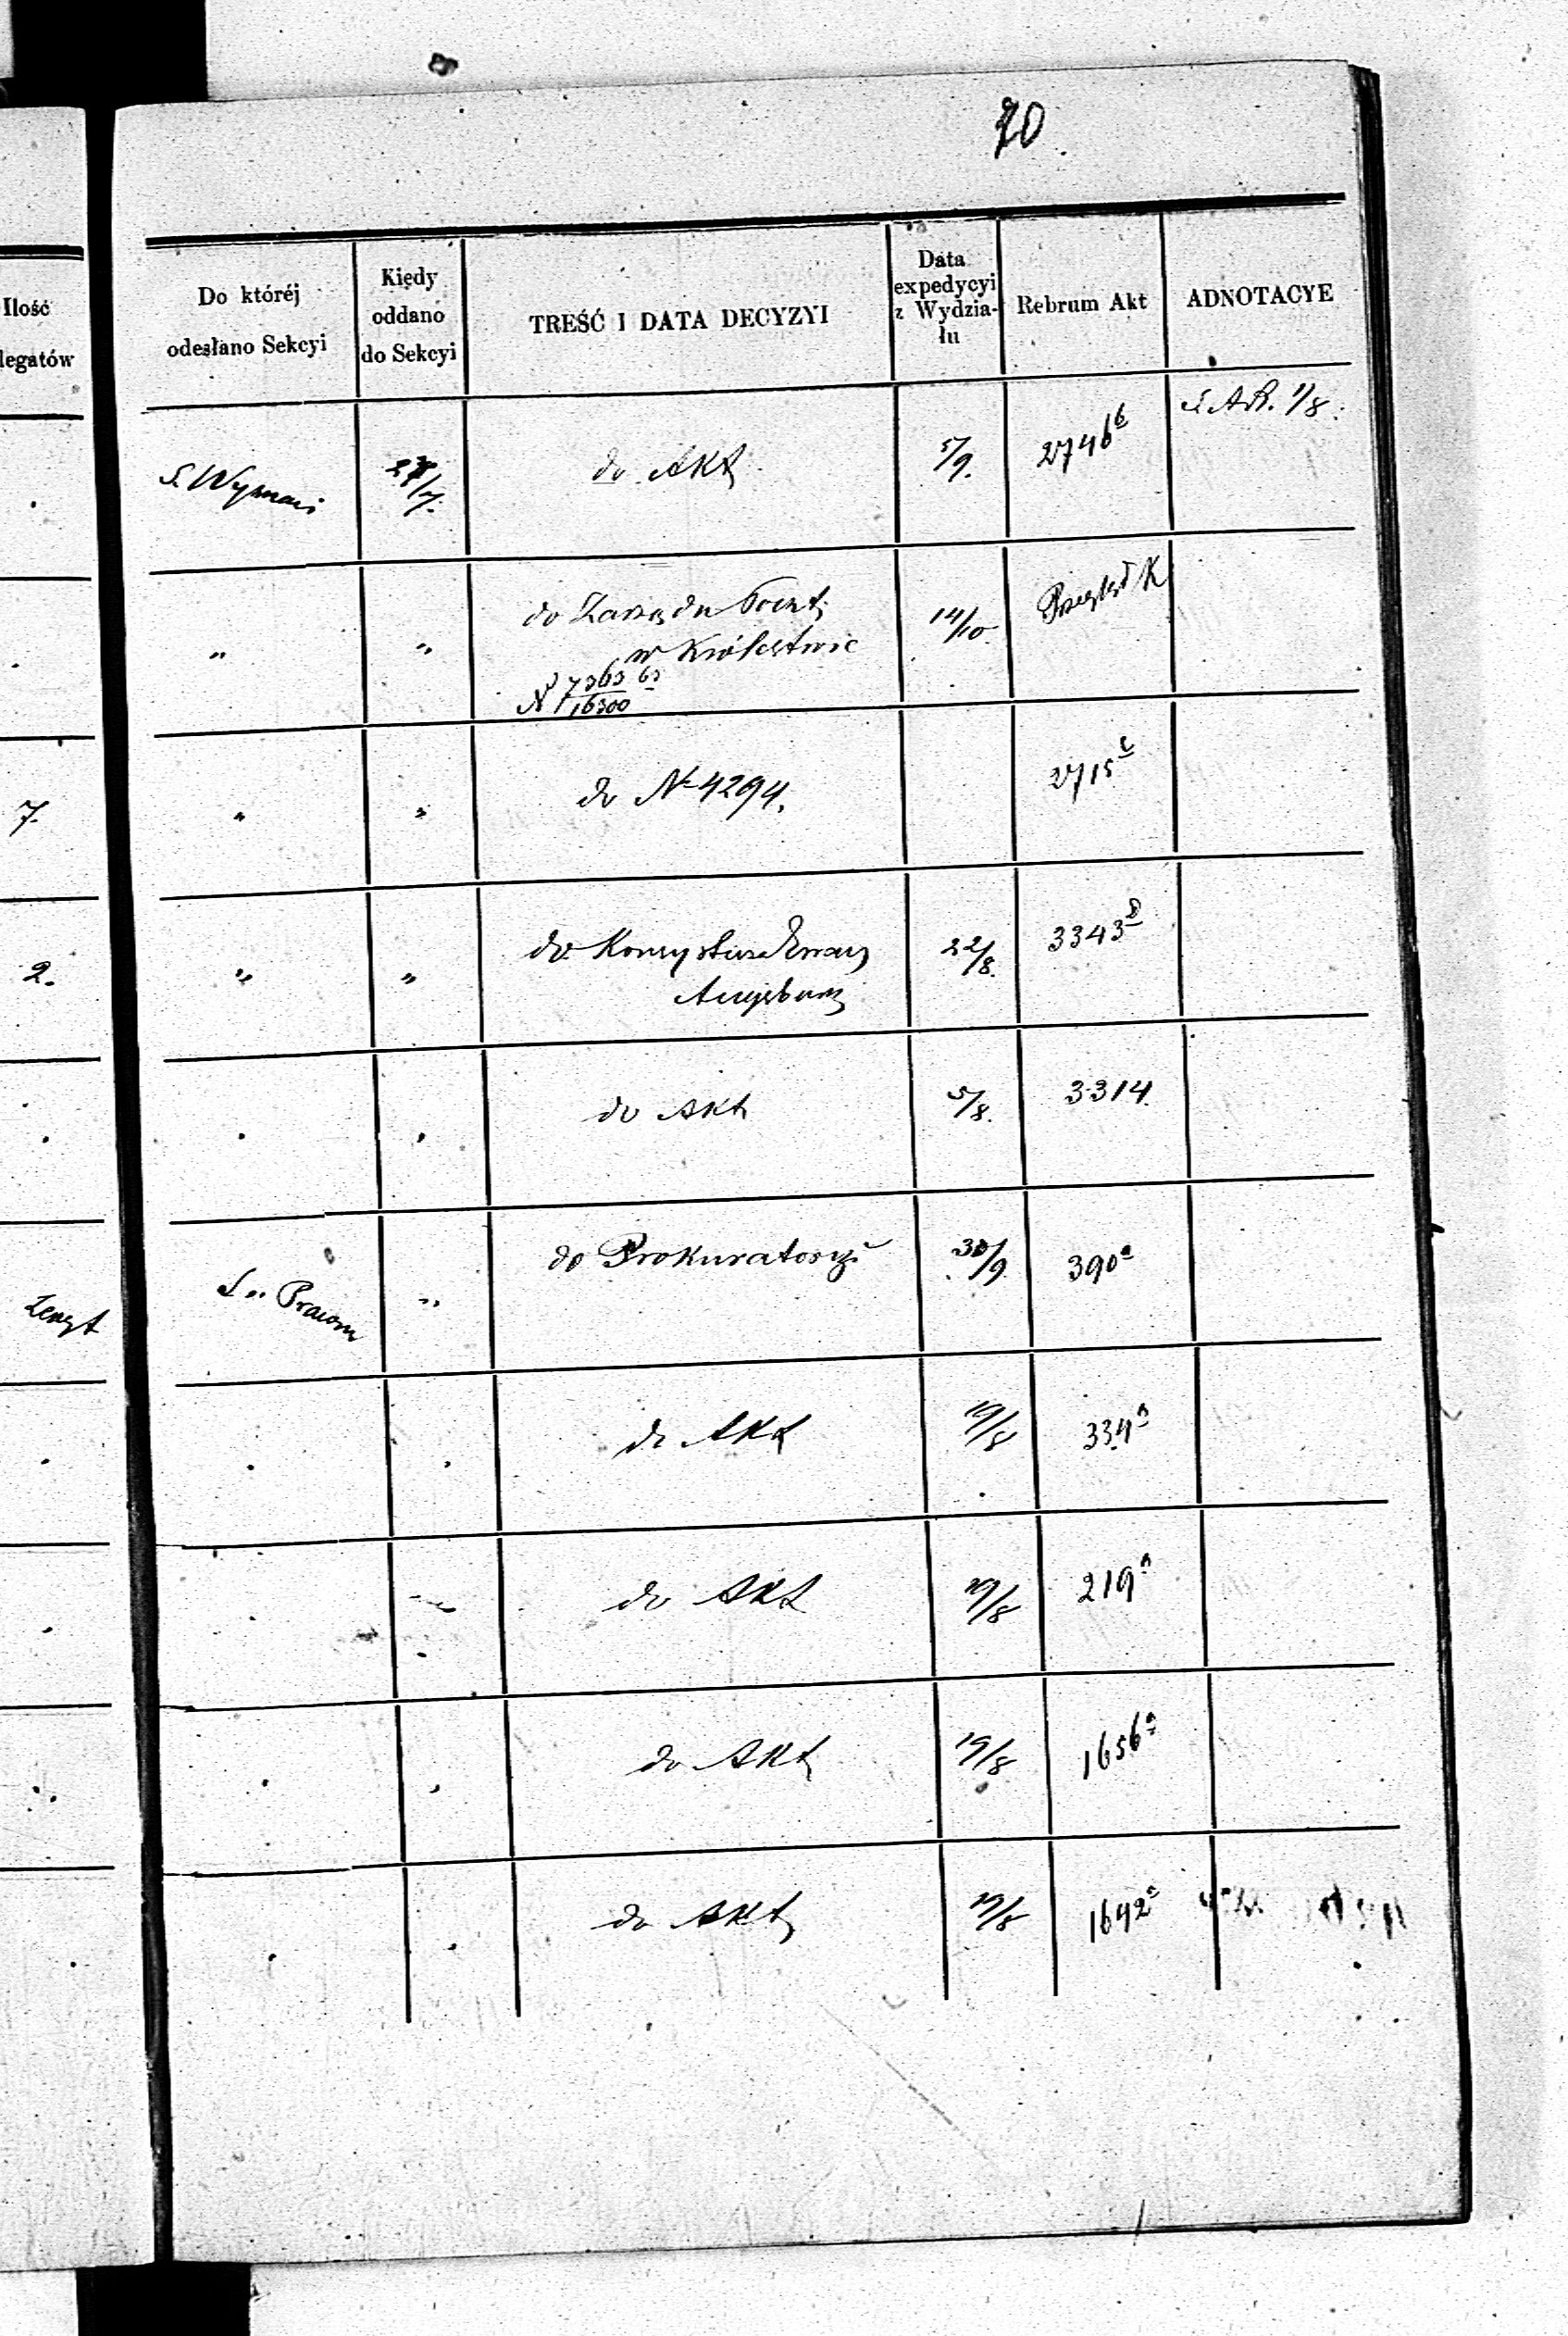 70.
Ilość
legatów
7.
2.
Zeszyt
Do któréj
odesłano Sekcyi
Kiedy
oddano
do Sekcyi
TREŚĆ I DATA DECYZYI
Data
expedycyi
z Wydzia-
łu
Rebrum Akt
ADNOTACYE
S. Wyznań 27/7. do Akt 5/9. 2746b 1/8.
" " do Zarządu Poczt
w Królestwie 14/10
№ 7363 63
16300
" " do № 4294. 2715c
" " do Konsystorza Ewang
Augsburg 22/8. 3343
" " do Akt 5/8. 3314
S. " " do Prokuratoryi 30/9 390a
do Akt 19/8 334a
do Akt 19/8 219a
do Akt 19/8 1656a
do Akt 19/8 1642a